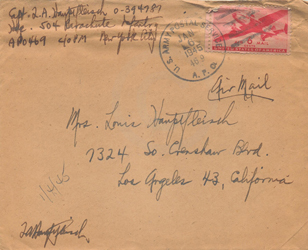 Capt. L. A. Hauptfleisch O-394787
504 Parachute Infantry
APO 469 c/o PM New York City
U.S. ARMY
A.P.O.
Air Mail
Mrs. Louis Hauptfleisch
7324 So. Crenshaw Blvd.
Los Angeles 43, California
LAHauptfleisch